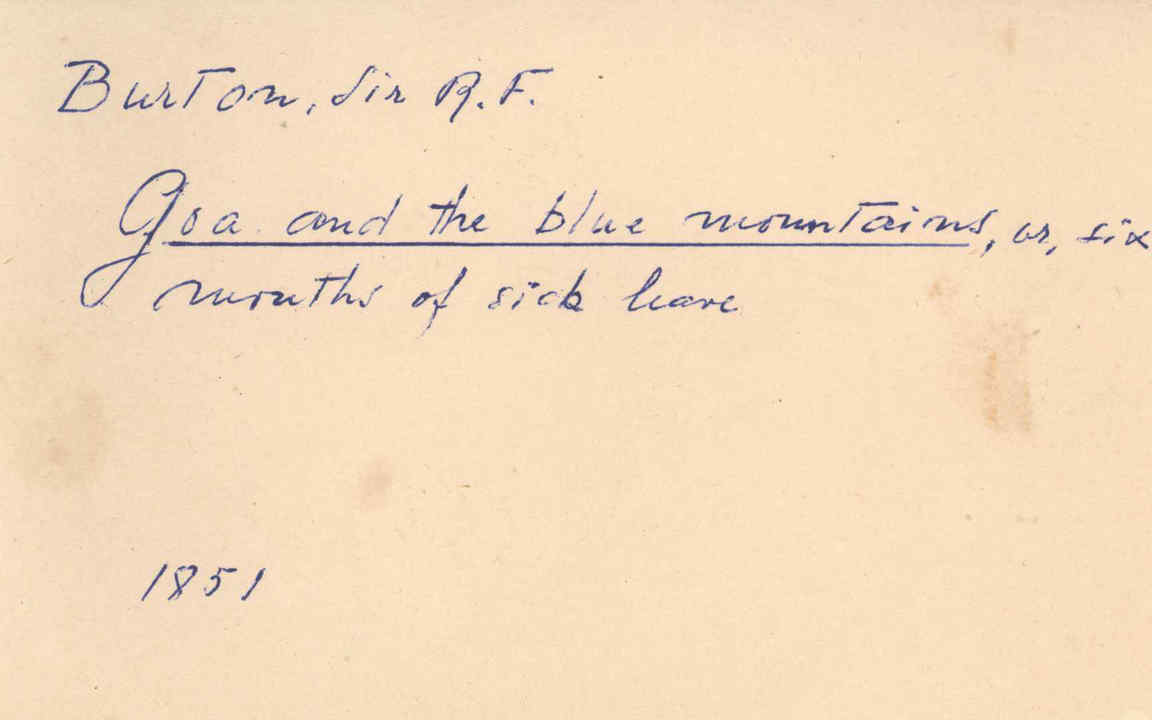 Burton, Sir R.F.
Goa and the blue mountains, or, six
months of sick leave
1851